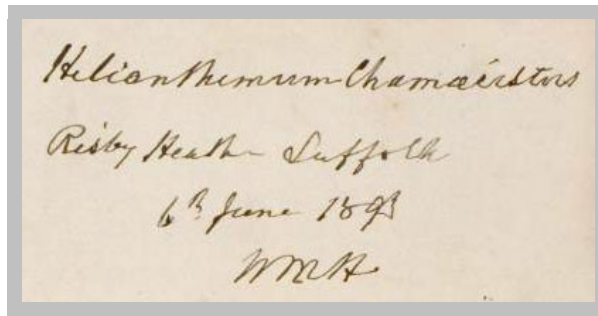 Helianthemum Chamaecistus
Risby Heath Suffolk
6th June 1893
WMH